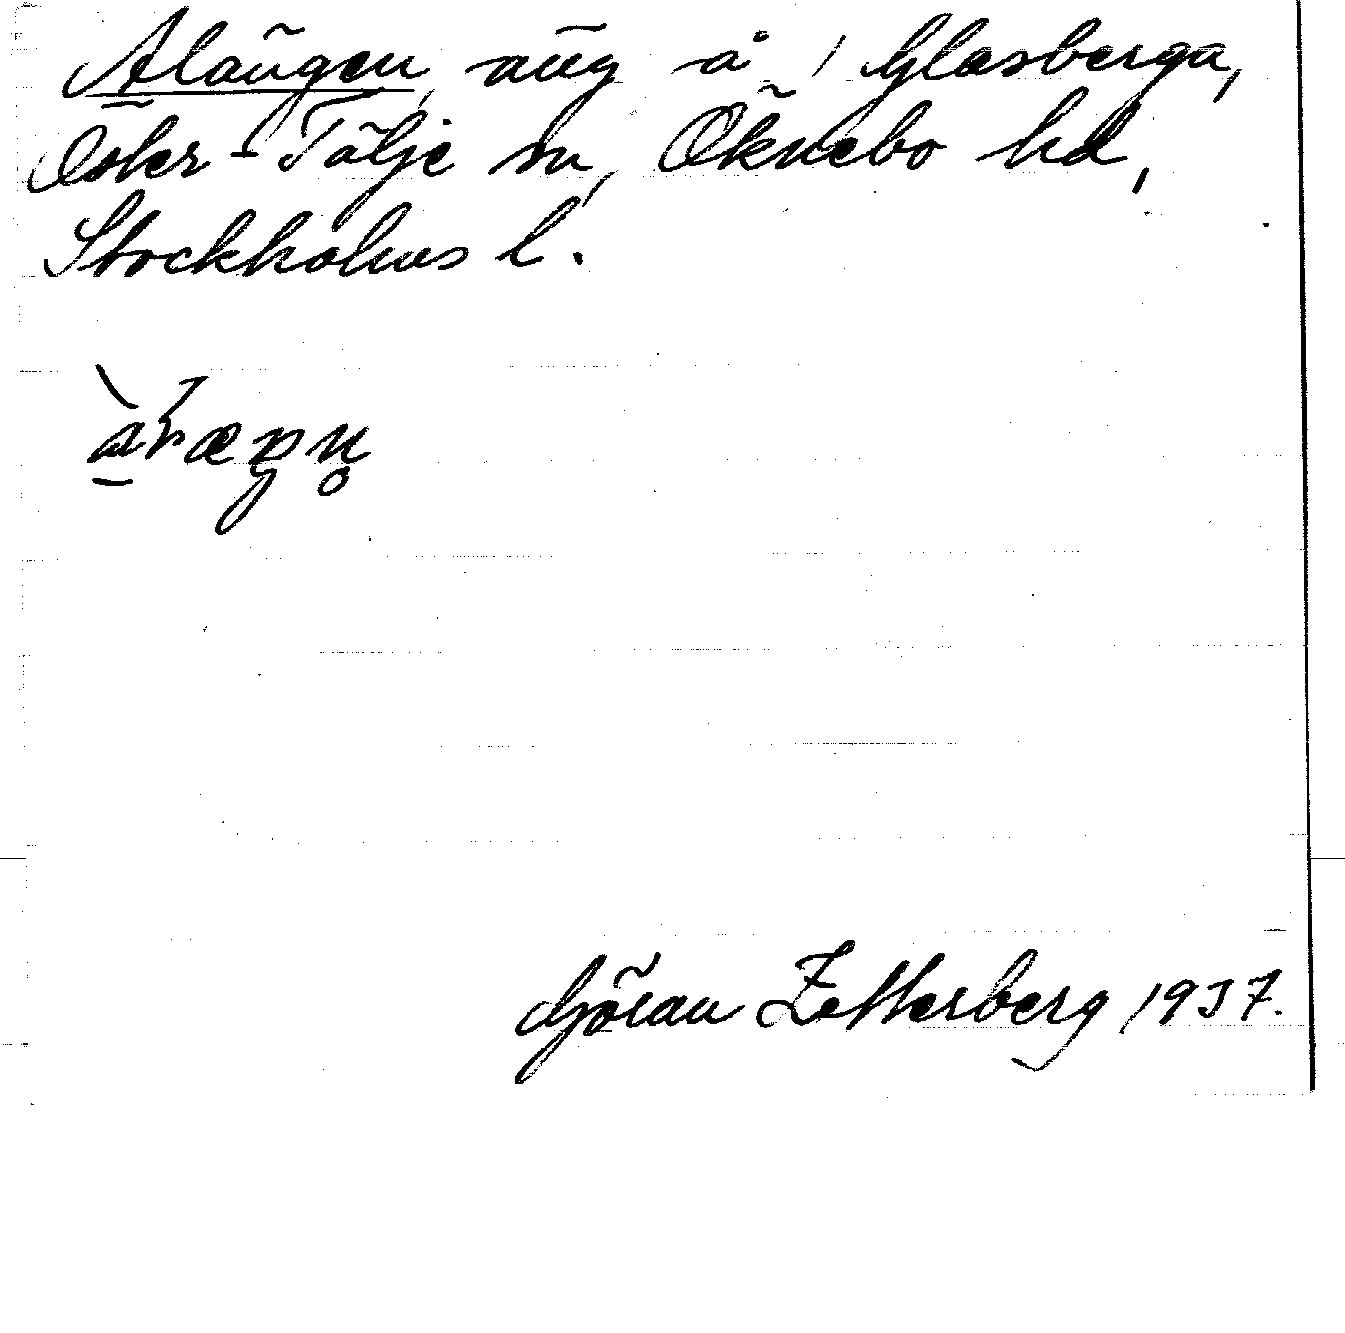 Alängen, äng å 1 Glasberga,
Öster-Tälje sn, Öknebo hd,
Stockholms l.
Göran Zetterberg 1937.